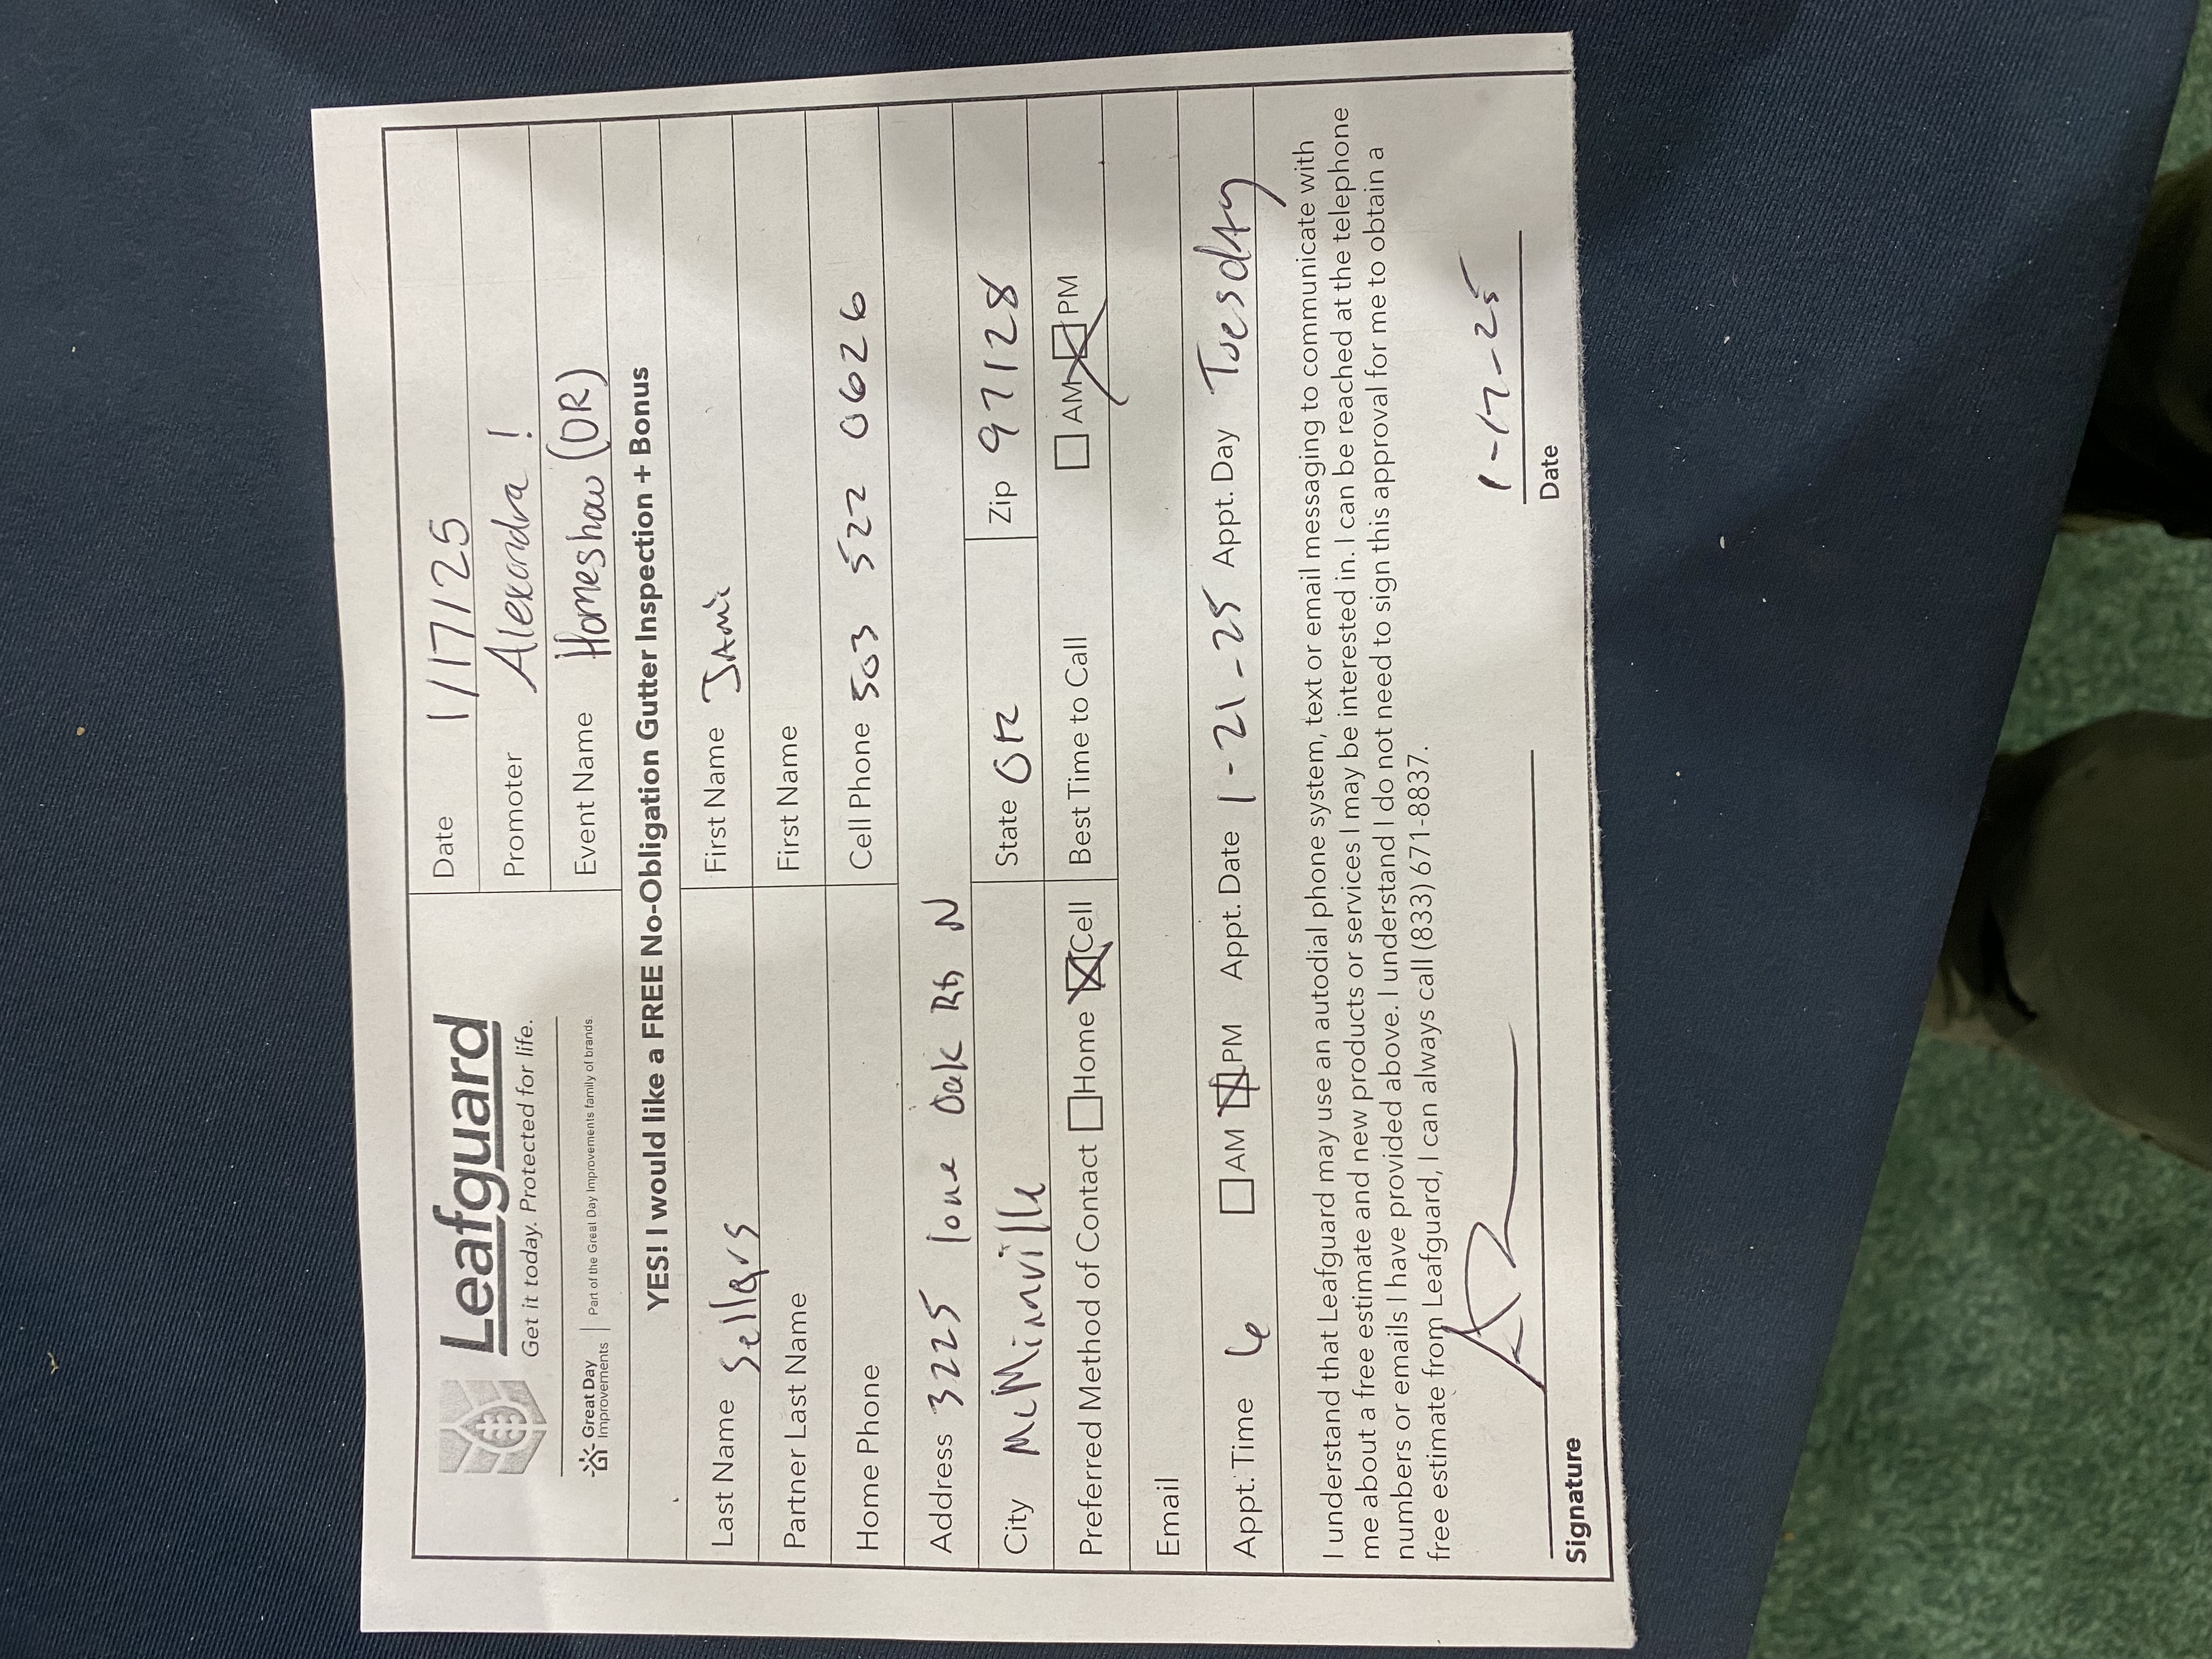 Leafguard
Get it today. Protected for life.
Great Day Improvements
Part of the Great Day Improvements family of brands.
Date 1/17/25
Promoter Alexandra !
Event Name Homeshow (OR)
YES! I would like a FREE No-Obligation Gutter Inspection + Bonus
Last Name Sellars First Name JAmi
Partner Last Name First Name
Home Phone Cell Phone 503 522 0626
Address 3225 lone Oak Rd N
City McMinnville State OR Zip 97128
Preferred Method of Contact Home Cell Best Time to Call AM PM
Email
Appt. Time 6 AM PM Appt. Date 1-21-25 Appt. Day Tuesday
I understand that Leafguard may use an autodial phone system, text or email messaging to communicate with
me about a free estimate and new products or services I may be interested in. I can be reached at the telephone
numbers or emails I have provided above. I understand I do not need to sign this approval for me to obtain a
free estimate from Leafguard, I can always call (833) 671-8837.
1-17-25
Signature Date